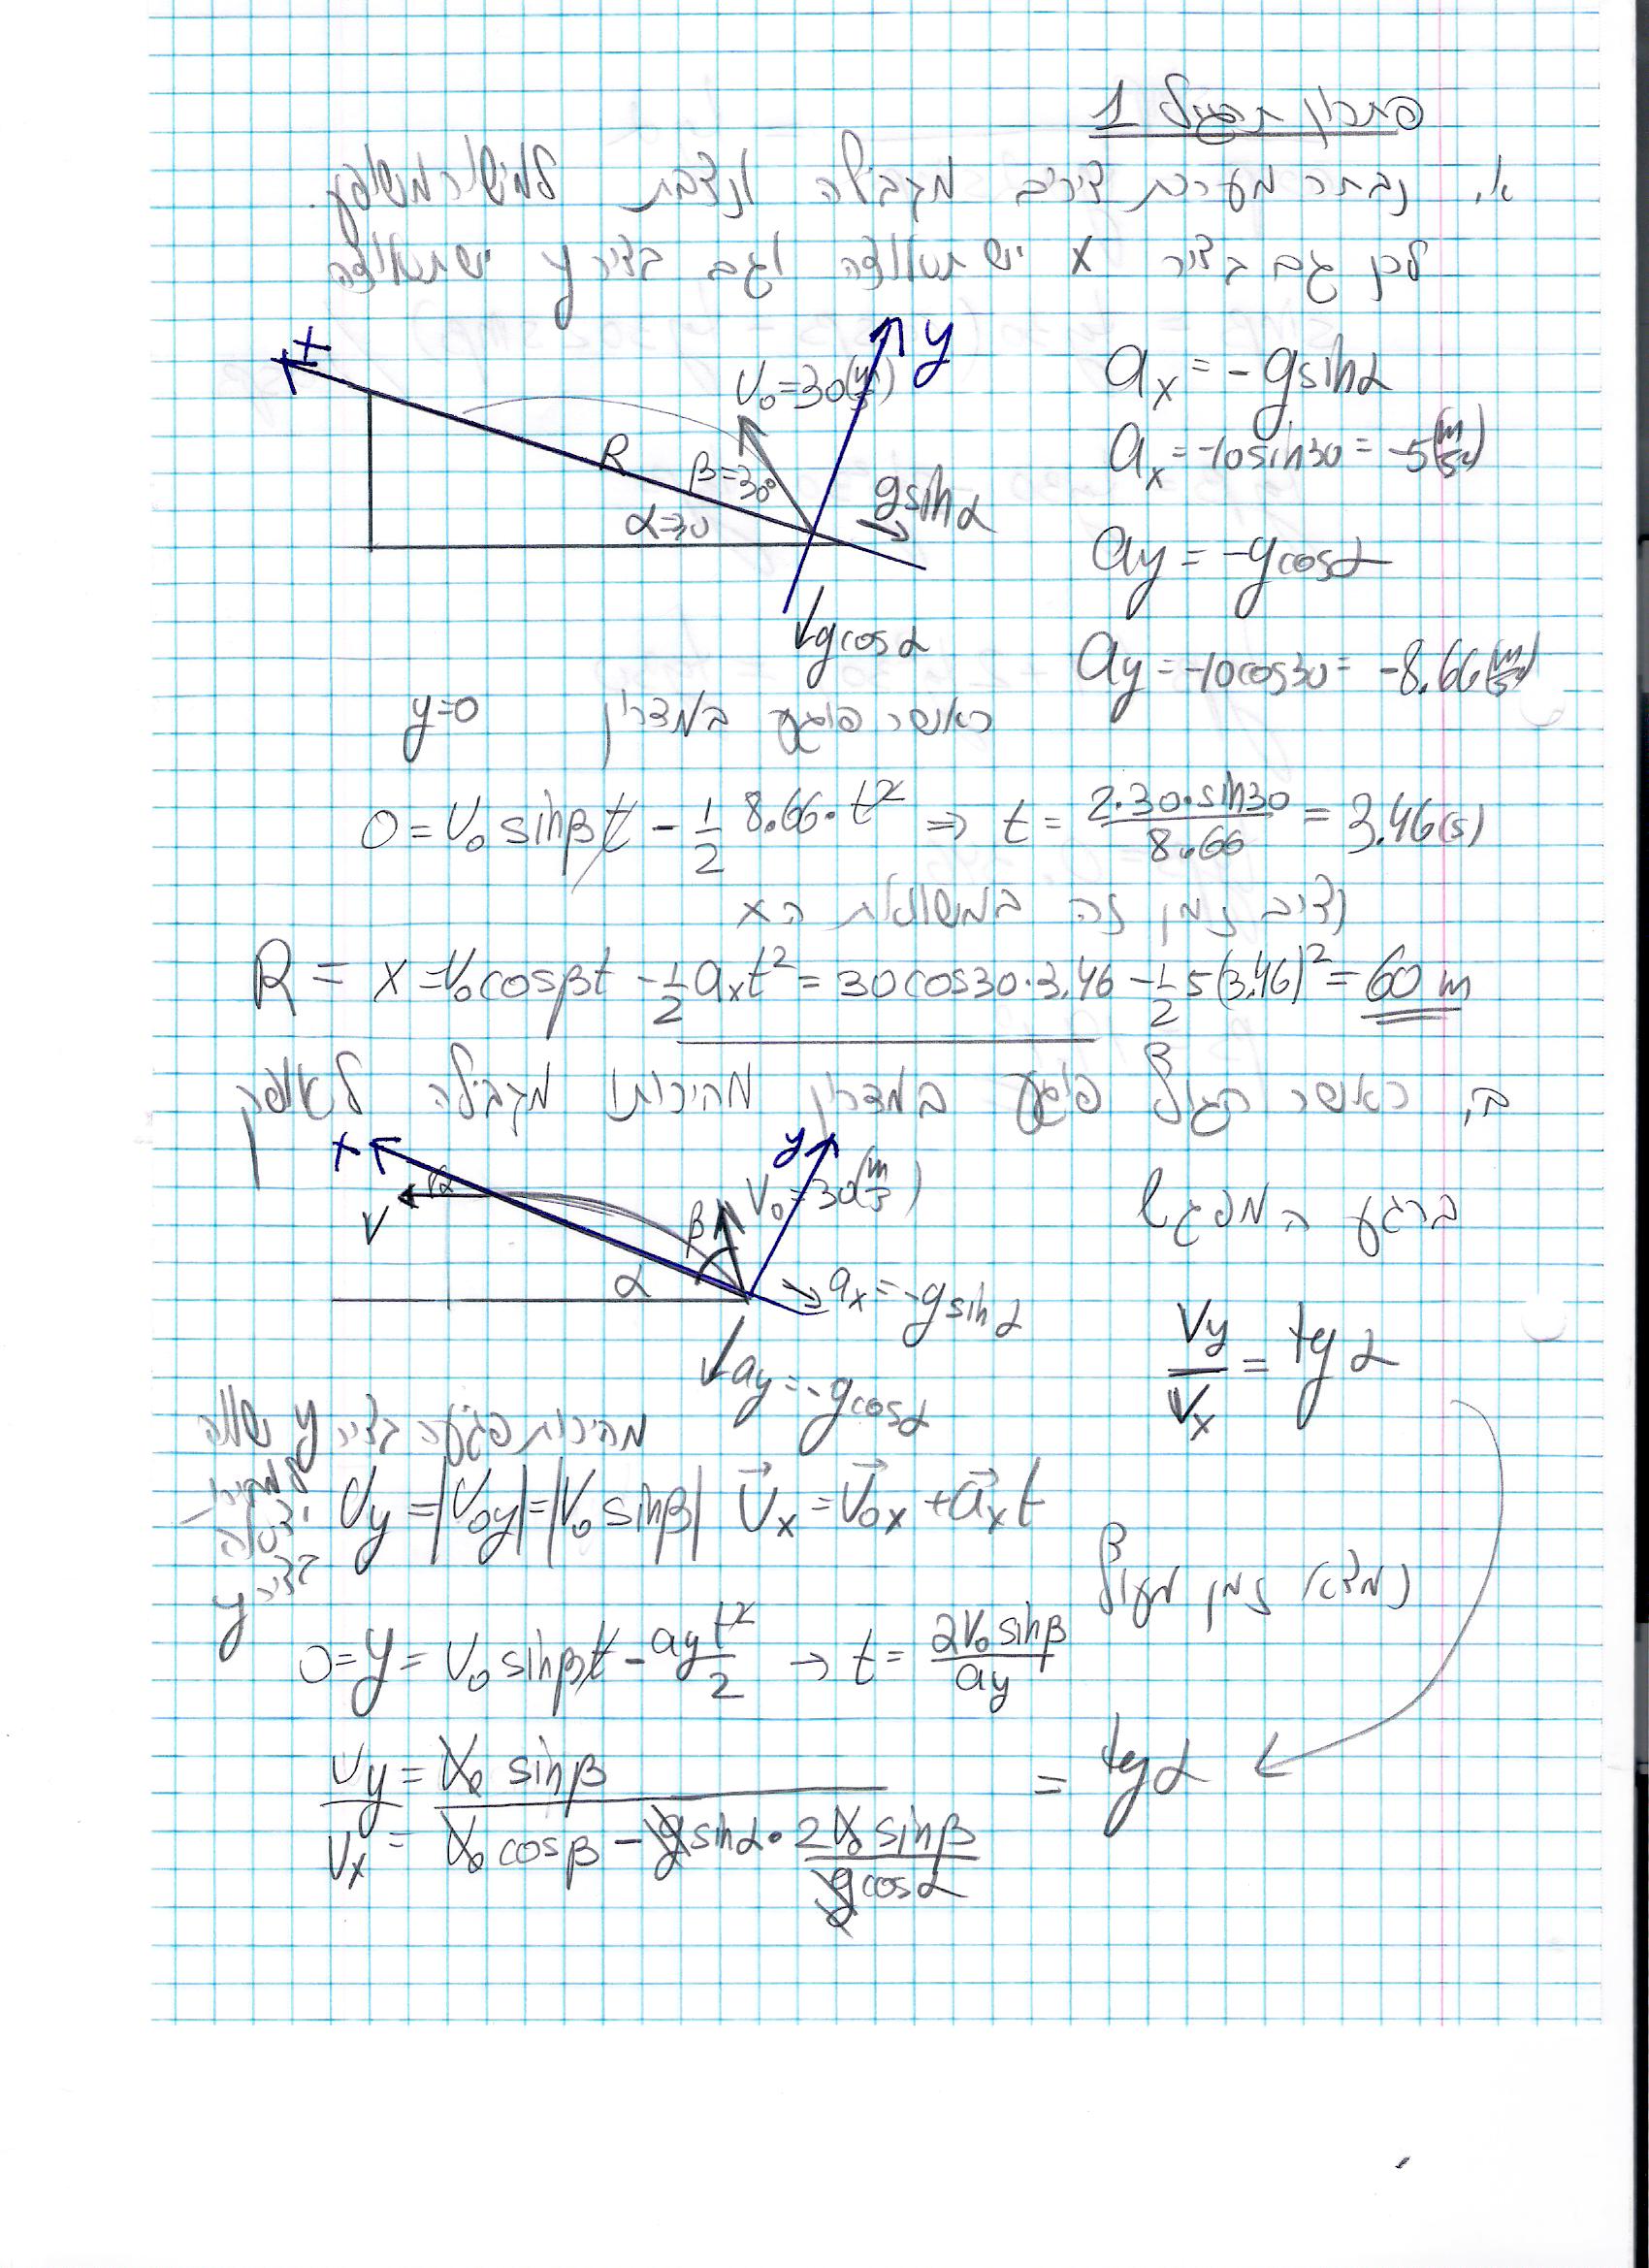 פתרון תרגיל 1
א. נבחר מערכת צירים מקבילה ונצבת למישור משופע.
לכן גם בציר x יש תאוצה וגם בציר y יש תאוצה
x
y
V₀=30(m/s)
aₓ = -g sinα
R
β=30°
α=30
g sinα
aₓ = -10 sin30 = -5(m/s²)
a_y = -g cosα
g cosα
a_y = -10 cos30 = -8.66(m/s²)
כאשר פוגע במדרון y=0
0 = V₀ sinβt - 1/2 8.66·t² ⇒ t = 2·30·sin30/8.66 = 3.46(s)
נציב זמן זה במשוואת הx
R = x = V₀cosβt - 1/2 aₓt² = 30cos30·3.46 - 1/2 5(3.46)² = 60 m
ב. כאשר הגוף פוגע במדרון מהירותו מקבילה לאופק
ברגע המפגש
x
y
α
V
V₀=30(m/s)
β
α
aₓ = -g sinα
a_y = -g cosα
V_y/Vₓ = tgα
מהירות פגיעה בציר y שווה
למהירות
יציאה
בציר y
V_y = |V₀y| = |V₀ sinβ| V⃗ₓ = V⃗₀ₓ + a⃗ₓt
נמצא זמן מעוף
0 = y = V₀ sinβt - a_y t²/2 → t = 2V₀ sinβ/a_y
V_y/Vₓ = V₀ sinβ/(V₀ cosβ - g sinα · 2V₀ sinβ/g cosα) = tgα